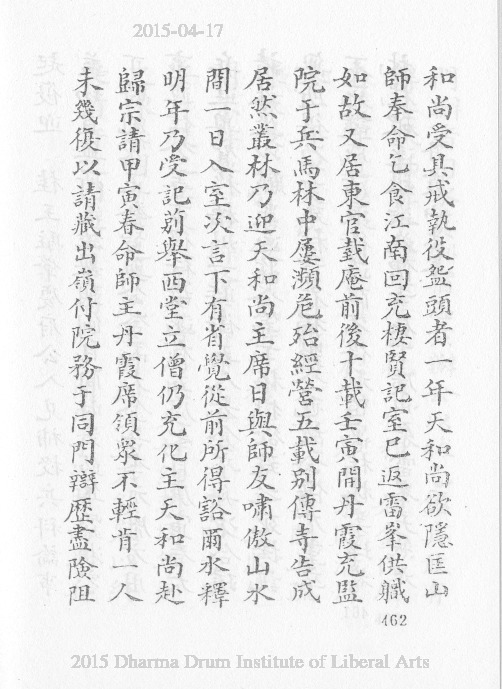 2015-04-17
和尚受具戒執役盤頭者一年天和尚欲隱匡山
師奉命乞食江南回充棲賢記室已返雷峯供職
如故又居東官𢧵庵前後十載壬寅開丹霞充監
院于兵馬林中屢瀕危殆經營五載別傳寺告成
居然叢林乃迎天和尚主席日與師友嘯傲山水
間一日入室次言下有省覺從前所得豁爾水釋
明年乃受記莂舉西堂立僧仍充化主天和尚赴
歸宗請甲寅春命師主丹霞席領眾不輕肯一人
未幾復以請藏出嶺付院務于同門辯歷盡險阻
462
2015 Dharma Drum Institute of Liberal Arts